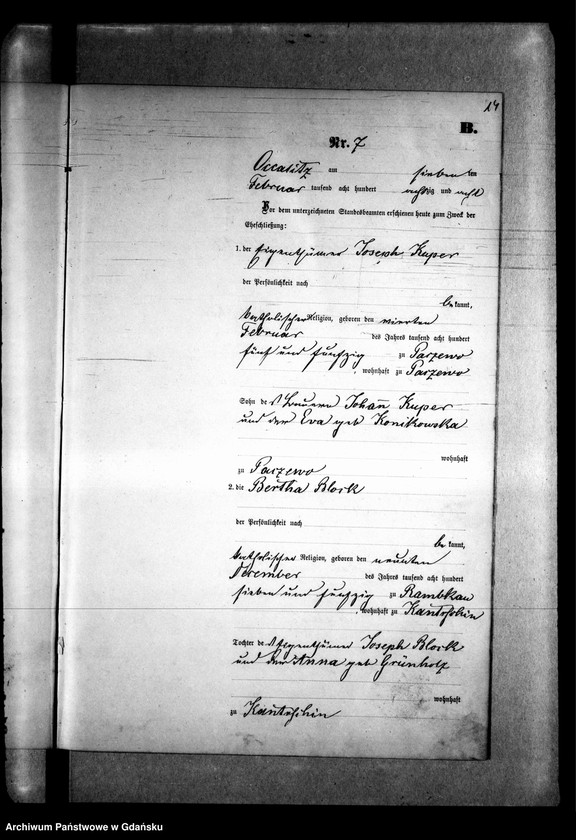 14
B.
Nr. 7
Occalitz am sieben ten
Februar tausend acht hundert achtzig und acht
Vor dem unterzeichneten Standesbeamten erschienen heute zum Zweck der
Eheschließung:
1. der Eigenthümer Joseph Kuper
der Persönlichkeit nach
be kannt,
katholischer Religion, geboren den vierten
Februar des Jahres tausend acht hundert
fünf und fünfzig zu Parzewo
, wohnhaft zu Parzewo
Sohn des Bauern Johann Kuper
und der Eva geb Konikowska
wohnhaft
zu Parzewo
2. die Bertha Block
der Persönlichkeit nach
be kannt,
katholischer Religion, geboren den neunten
December des Jahres tausend acht hundert
sieben und fünfzig zu Rambkau
, wohnhaft zu
Tochter des Eigenthümer Joseph Block
und der Anna geb Grünholz
wohnhaft
zu
Archiwum Państwowe w Gdańsku